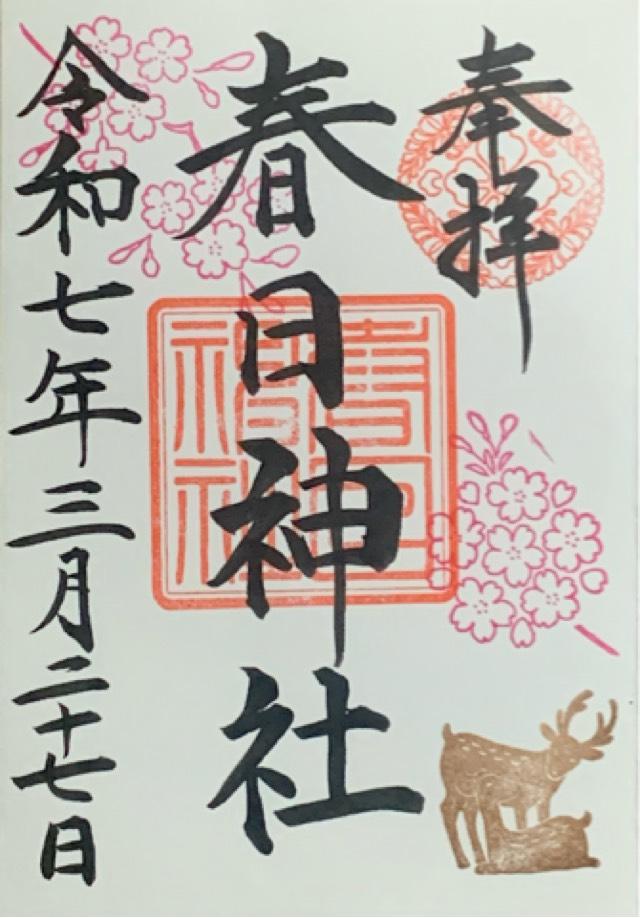 奉拝
春日神社
春日神社
令和七年三月二十七日